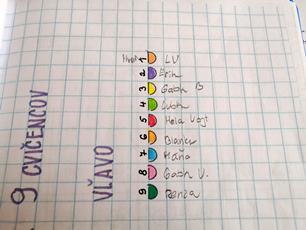 9 CVIČENCOV
VĽAVO
1 LV
2 Erin
3 Gabh B
4 Lubka
5 Hela Vojt
6 Blanka
7 Haňa
8 Gabh V.
9 Renza